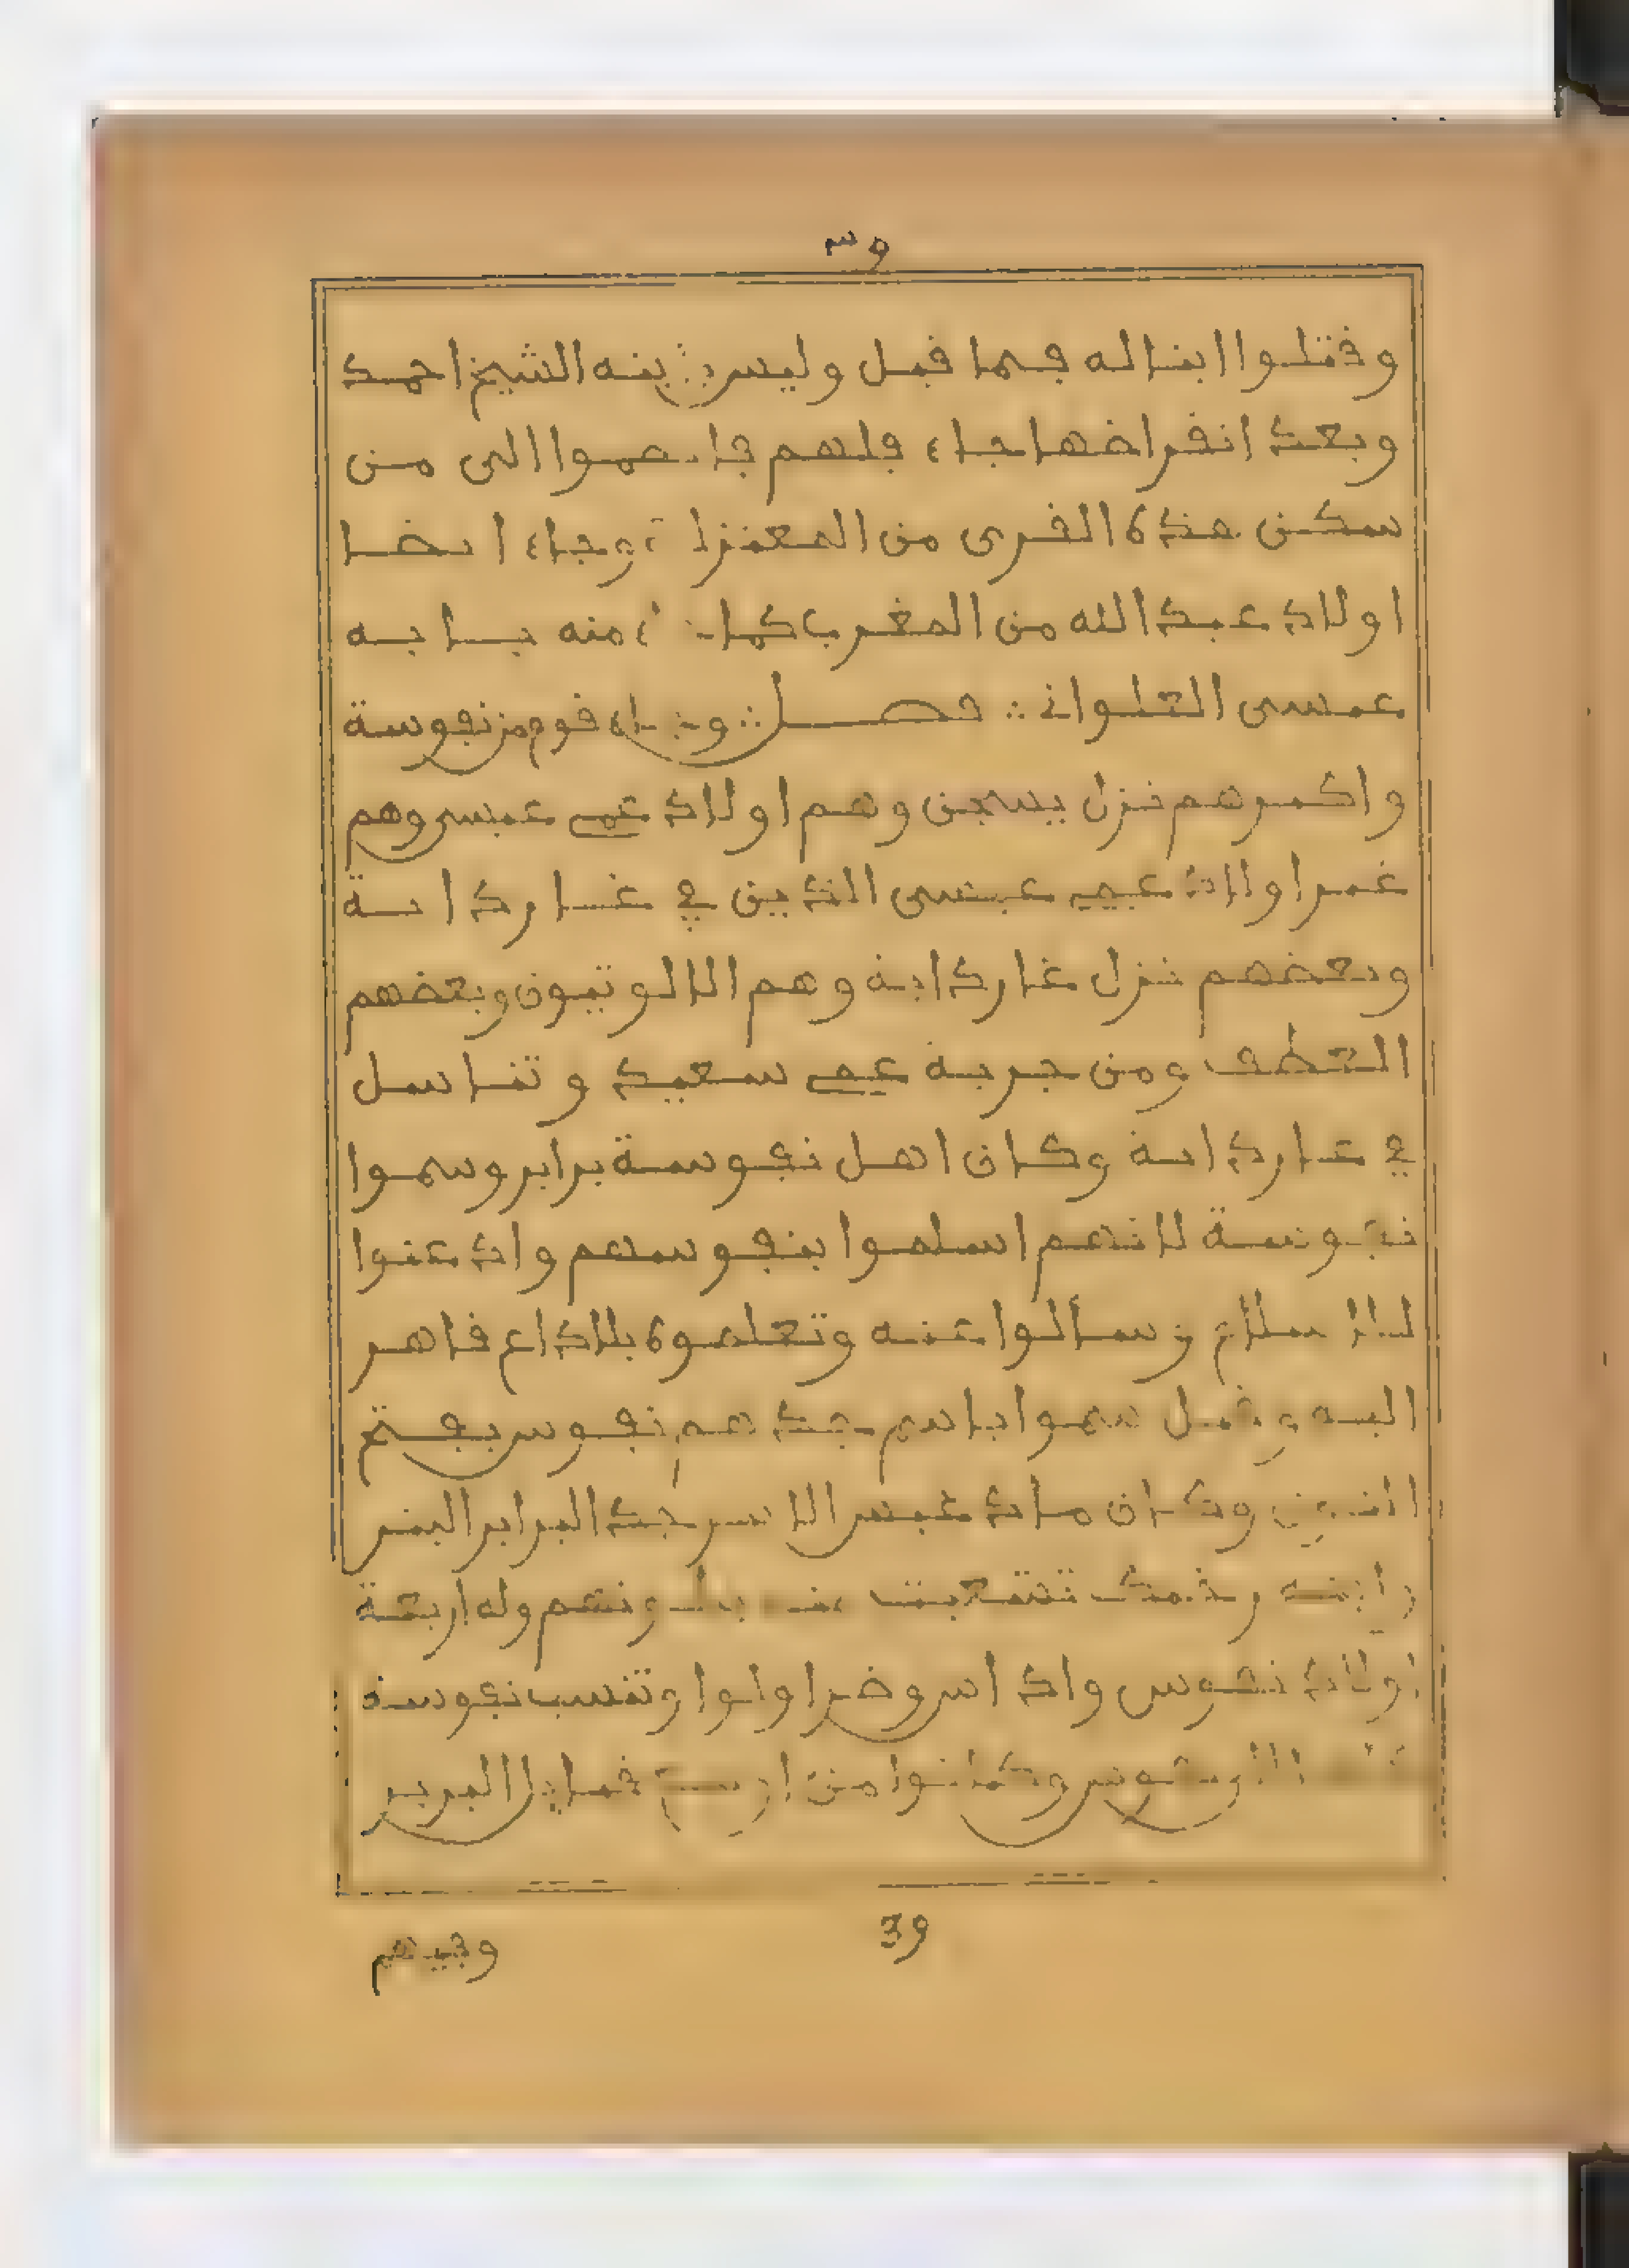 ٣٩
وقتلوا ابنا له فيما قبل وليس ابنه الشيخ احمد
وبعد انقراضها جاء فلهم فانضموا الى من
سكن هذه القرى من المعتزلة وجاء ايضا
اولاد عبد الله من المغرب منه بابه
عيسى العلواني فصل وجاء قوم من نفوسة
واكثرهم نزل يسجن وهم اولاد عمي عيسى وهم
غير اولاد عمي عيسى الذين في غارداية
وبعضهم نزل غارداية وهم الالوتيون وبعضهم
القطف ومن جربة عمي سعيد وتناسل
في غارداية وكان اهل نفوسة برابر وسموا
نفوسة لانهم اسلموا بنفوسهم واذعنوا
للاسلام وسألوا عنه وتعلموه بلا داع قاهر
اليه وقيل سموا باسم جدهم نفوس بفتح
النون وكان مادغيس الابتر جد البرابر البتر
وابنه زحيك تشعبت بطونهم وله اربعة
اولاد نفوس واداس وضرا ولوا وتنسب نفوسة
وكانوا من اوسع قبايل البربر
39
وفيهم